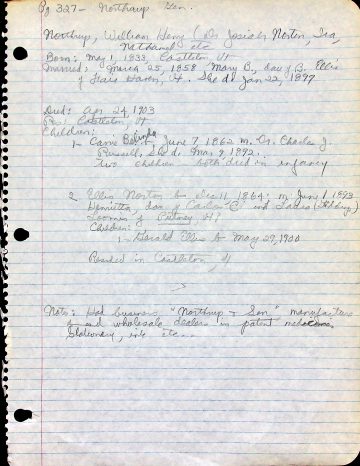 Pg 327 - Northrup Gen.
Northrup, William Henry (5 Josiah, Norton, Ira,
Nathaniel etc
Born: May 1, 1833 Castleton Vt
Married: March 25, 1858 Mary B., day of B. Ellis
of Fair Haven, Vt. She d. Jan 22, 1899
Died: Apr 24, 1903
Castleton Vt
Children:
1- Carrie Belinda b. June 7, 1862 m. Dr. Charles J.
Russell, She d. Mar 9, 1892.
Two children - both died in infancy
2 Ellis Norton b. Dec 11, 1864; m June 1, 1893
Henrietta, dau of and
Loomis of Putney Vt
Children:
1- Gerald Ellis b. May 29, 1900
Resided in Castleton Vt
Note: Had business "Northrup & Son" manufacture
of and wholesale dealers in patent medicine,
Stationary, ink etc.